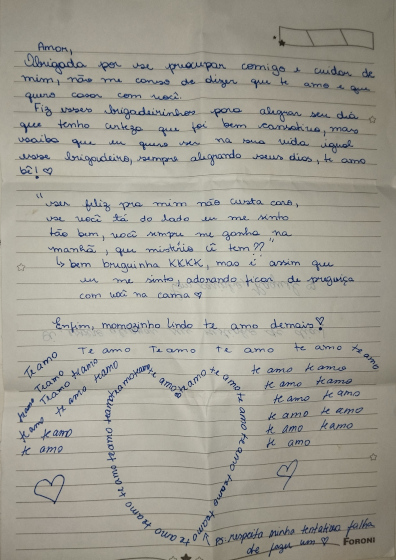 Amor,
Obrigada por se preocupar comigo e cuidar de
mim, não me canso de dizer que te amo e que
quero casar com você.
Fiz esses brigadeirinhos para alegrar seu dia
que tenho certeza que foi bem cansativo, mas
saiba que eu quero ser na sua vida igual
esse brigadeiro, sempre alegrando seus dias, te amo
bê! ♡
"ser feliz pra mim não custa caro,
se você tá do lado eu me sinto
tão bem, você sempre me ganha na
manhã, que mistério cê tem??"
↳ bem breguinha KKKK, mas é assim que
eu me sinto, adorando ficar de preguiça
com você na cama ♡
Enfim, momozinho lindo te amo demais!
Te amo Te amo Te amo te amo te amo te amo
Te amo te amo te amo
Te amo te amo te amo te amo
te amo te amo te amo
te amo te amo te amo
te amo te amo te amo
te amo te amo te amo
te amo te amo
te amo te amo te amo te amo te amo te amo te amo te amo
te amo te amo te amo te amo te amo te amo te amo
ps: respeita minha tentativa falha
de fazer um ♡
FORONI